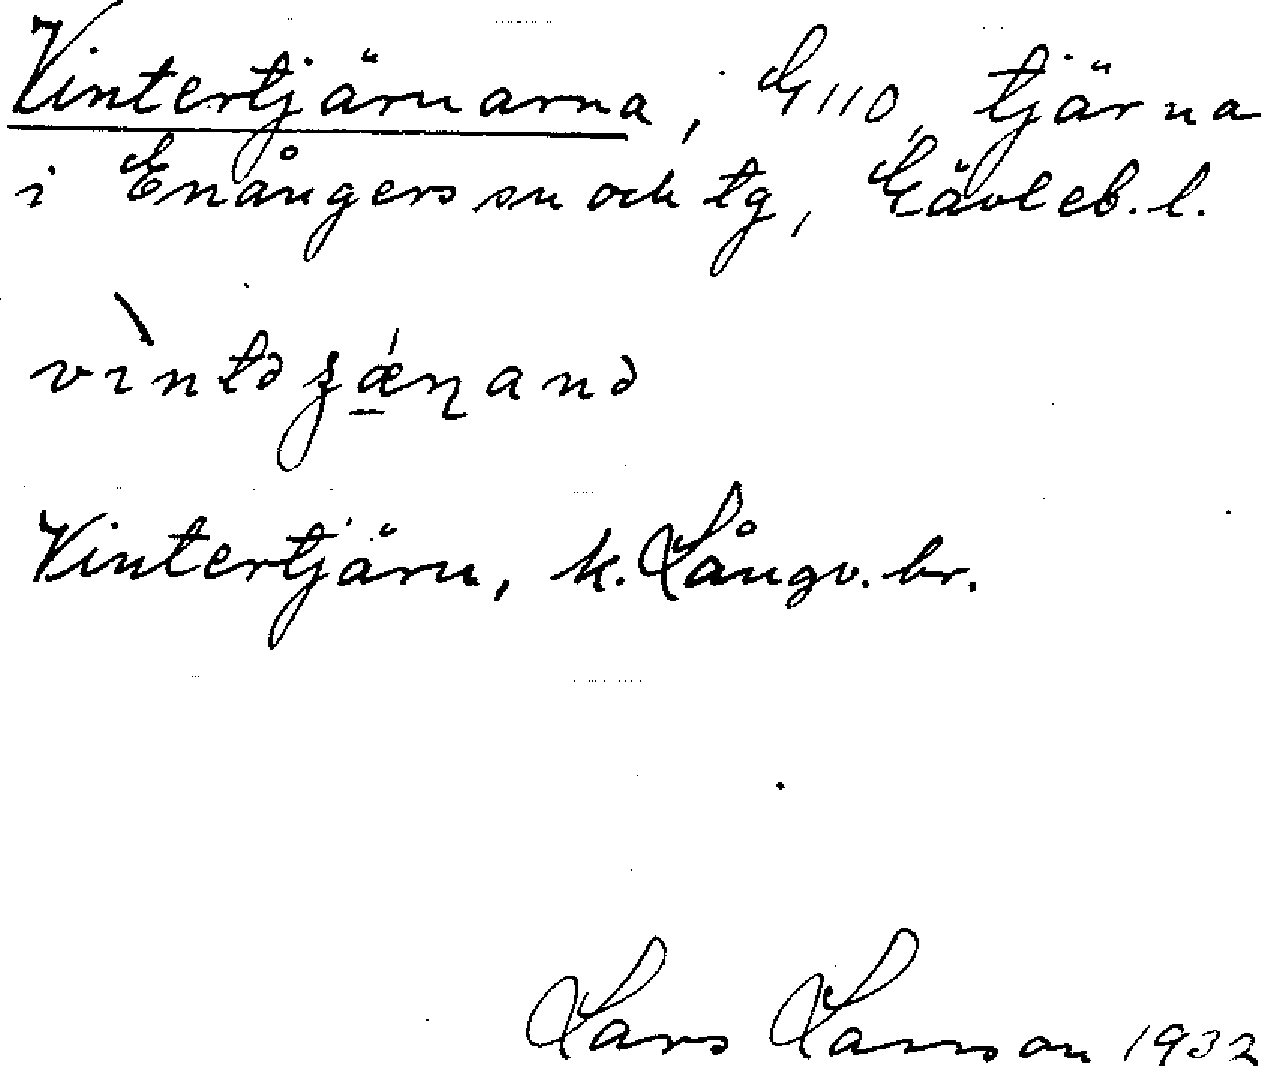 Vintertjärnarna, G110, tjärna
i Enångers sn och tg, Gävleb. l.
vìntəʒǽɳanə
Vintertjärn, k. Långv. br.
Lars Larsson 1932